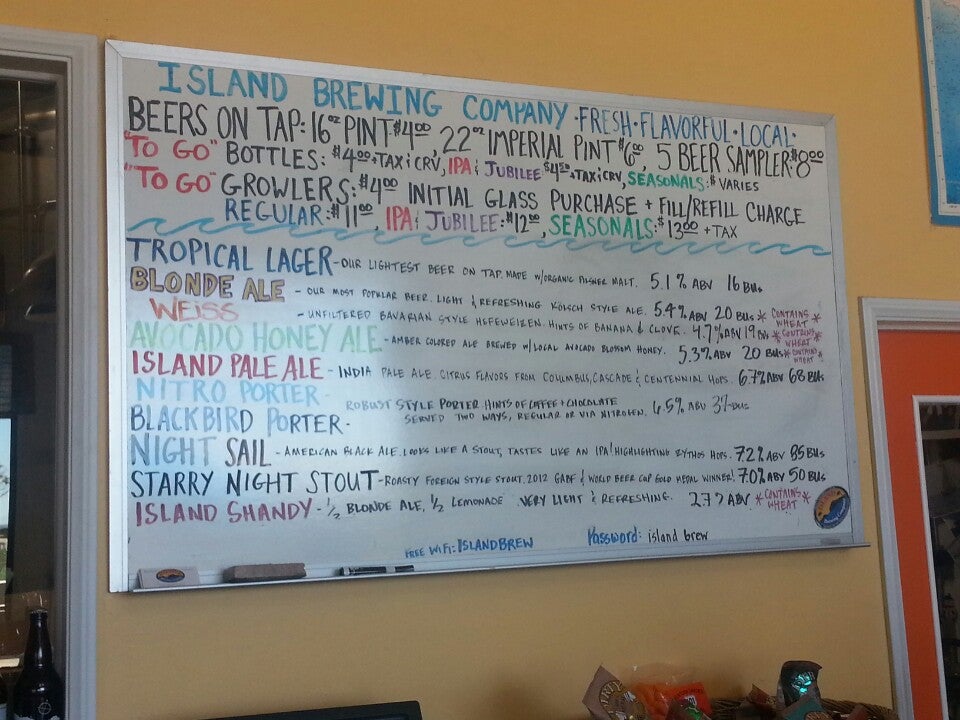 ISLAND BREWING COMPANY · FRESH · FLAVORFUL · LOCAL ·
BEERS ON TAP: 16oz PINT $4.00, 22oz IMPERIAL PINT $6.00, 5 BEER SAMPLER: $8.00
"TO GO" BOTTLES: $4.00 + TAX & CRV, IPA & JUBILEE $4.50 + TAX & CRV, SEASONALS: $ VARIES
"TO GO" GROWLERS: $4.00 INITIAL GLASS PURCHASE + FILL/REFILL CHARGE
REGULAR: $11.00, IPA & JUBILEE: $12.00, SEASONALS: $13.00 + TAX
TROPICAL LAGER - OUR LIGHTEST BEER ON TAP. MADE W/ORGANIC PILSNER MALT. 5.1% ABV 16 BUs
BLONDE ALE - OUR MOST POPULAR BEER. LIGHT & REFRESHING KÖLSCH STYLE ALE. 5.4% ABV 20 BUs * CONTAINS WHEAT *
WEISS - UNFILTERED BAVARIAN STYLE HEFEWEIZEN. HINTS OF BANANA & CLOVE. 4.7% ABV 19 BUs * CONTAINS WHEAT *
AVOCADO HONEY ALE - AMBER COLORED ALE BREWED W/LOCAL AVOCADO BLOSSOM HONEY. 5.3% ABV 20 BUs * CONTAINS WHEAT *
ISLAND PALE ALE - INDIA PALE ALE. CITRUS FLAVORS FROM COLUMBUS, CASCADE & CENTENNIAL HOPS. 6.7% ABV 68 BUs
NITRO PORTER -
BLACKBIRD PORTER -
ROBUST STYLE PORTER HINTS OF COFFEE + CHOCOLATE
SERVED TWO WAYS, REGULAR OR VIA NITROGEN. 6.5% ABV BUs
NIGHT SAIL - AMERICAN BLACK ALE. LOOKS LIKE A STOUT, TASTES LIKE AN IPA! HIGHLIGHTING ZYTHOS HOPS. 7.2% ABV 85 BUs
STARRY NIGHT STOUT - ROASTY FOREIGN STYLE STOUT. 2012 GABF & WORLD BEER CUP GOLD MEDAL WINNER! 7.0% ABV 50 BUs
ISLAND SHANDY - 1/2 BLONDE ALE, 1/2 LEMONADE VERY LIGHT & REFRESHING. 2.7% ABV * CONTAINS WHEAT *
FREE WIFI: ISLANDBREW Password: island brew